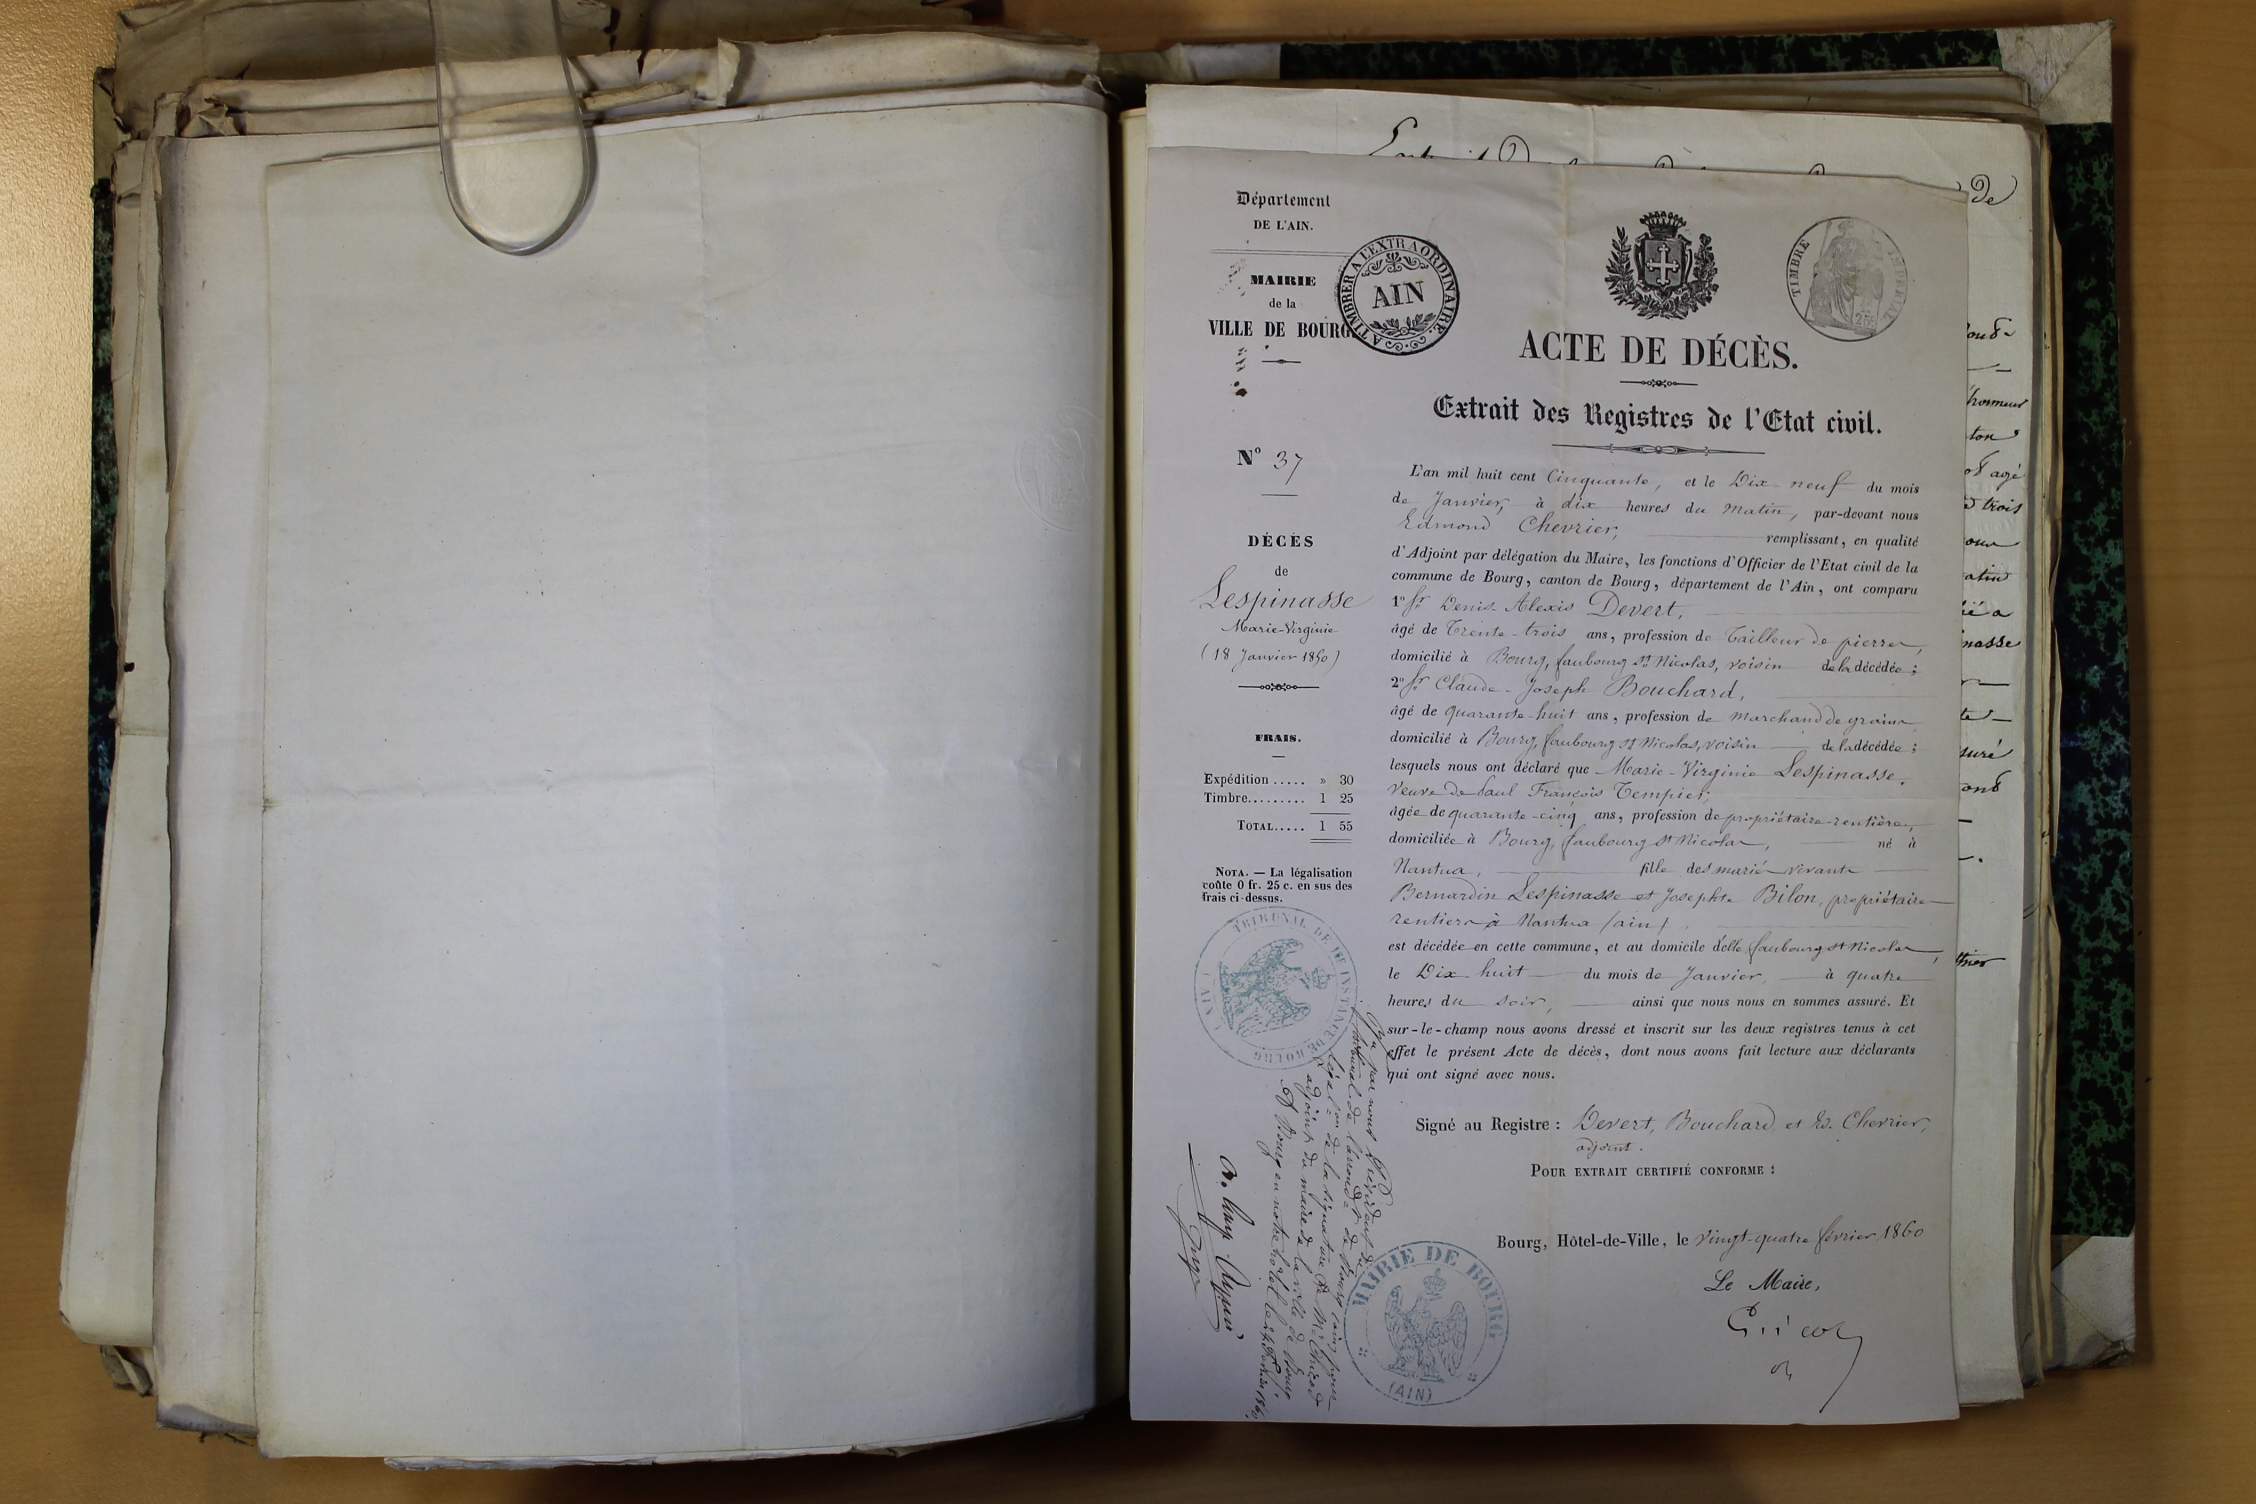 Département
DE L'AIN.
MAIRIE
de la
VILLE DE BOURG.
A TIMBRER A L'EXTRAORDINAIRE.
AIN
TIMBRE IMPERIAL
25c
ACTE DE DÉCÈS.
Extrait des Registres de l'Etat civil.
N° 37
DÉCÈS
de
Lespinasse
Marie-Virginie
(18 Janvier 1850)
FRAIS.
Expédition ..... » 30
Timbre......... 1 25
TOTAL..... 1 55
NOTA. — La légalisation
coûte 0 fr. 25 c. en sus des
frais ci-dessus.
TRIBUNAL DE 1re INSTANCE DE BOURG
(AIN)
L'an mil huit cent Cinquante, et le Dix neuf du mois
de Janvier, à dix heures du matin, par-devant nous
Edmond Chevrier, remplissant, en qualité
d'Adjoint par délégation du Maire, les fonctions d'Officier de l'Etat civil de la
commune de Bourg, canton de Bourg, département de l'Ain, ont comparu
1° Sr Denis-Alexis Devert,
âgé de Trente-trois ans, profession de Tailleur de pierres,
domicilié à Bourg, faubourg St Nicolas, voisin de la décédée;
2° Sr Claude-Joseph Bouchard,
âgé de quarante-huit ans, profession de marchand de grains
domicilié à Bourg, faubourg St Nicolas, voisin de la décédée;
lesquels nous ont déclaré que Marie-Virginie Lespinasse,
veuve de Paul François Tempier,
âgée de quarante-cinq ans, profession de propriétaire-rentière,
domiciliée à Bourg, faubourg St Nicolas, né à
Nantua, fille des mariés vivants
Bernardin Lespinasse et Josephte Bilon, propriétaires
rentiers à Nantua (ain)
est décédée en cette commune, et au domicile d'elle faubourg St Nicolas,
le Dix huit du mois de Janvier, à quatre
heures du soir, ainsi que nous nous en sommes assuré. Et
sur-le-champ nous avons dressé et inscrit sur les deux registres tenus à cet
effet le présent Acte de décès, dont nous avons fait lecture aux déclarants
qui ont signé avec nous.
Signé au Registre : Devert, Bouchard et Ed. Chevrier,
adjoint.
POUR EXTRAIT CERTIFIÉ CONFORME :
Bourg, Hôtel-de-Ville, le vingt-quatre février 1860
Le Maire,
MAIRIE DE BOURG
(AIN)
Vu par nous Président du
tribunal de l'arrondt de Bourg (ain) pour
légalon de la signature de Mr
adjoint du maire de la ville de Bourg
A Bourg en notre hôtel le 1860
Juge
de
trois
nasse